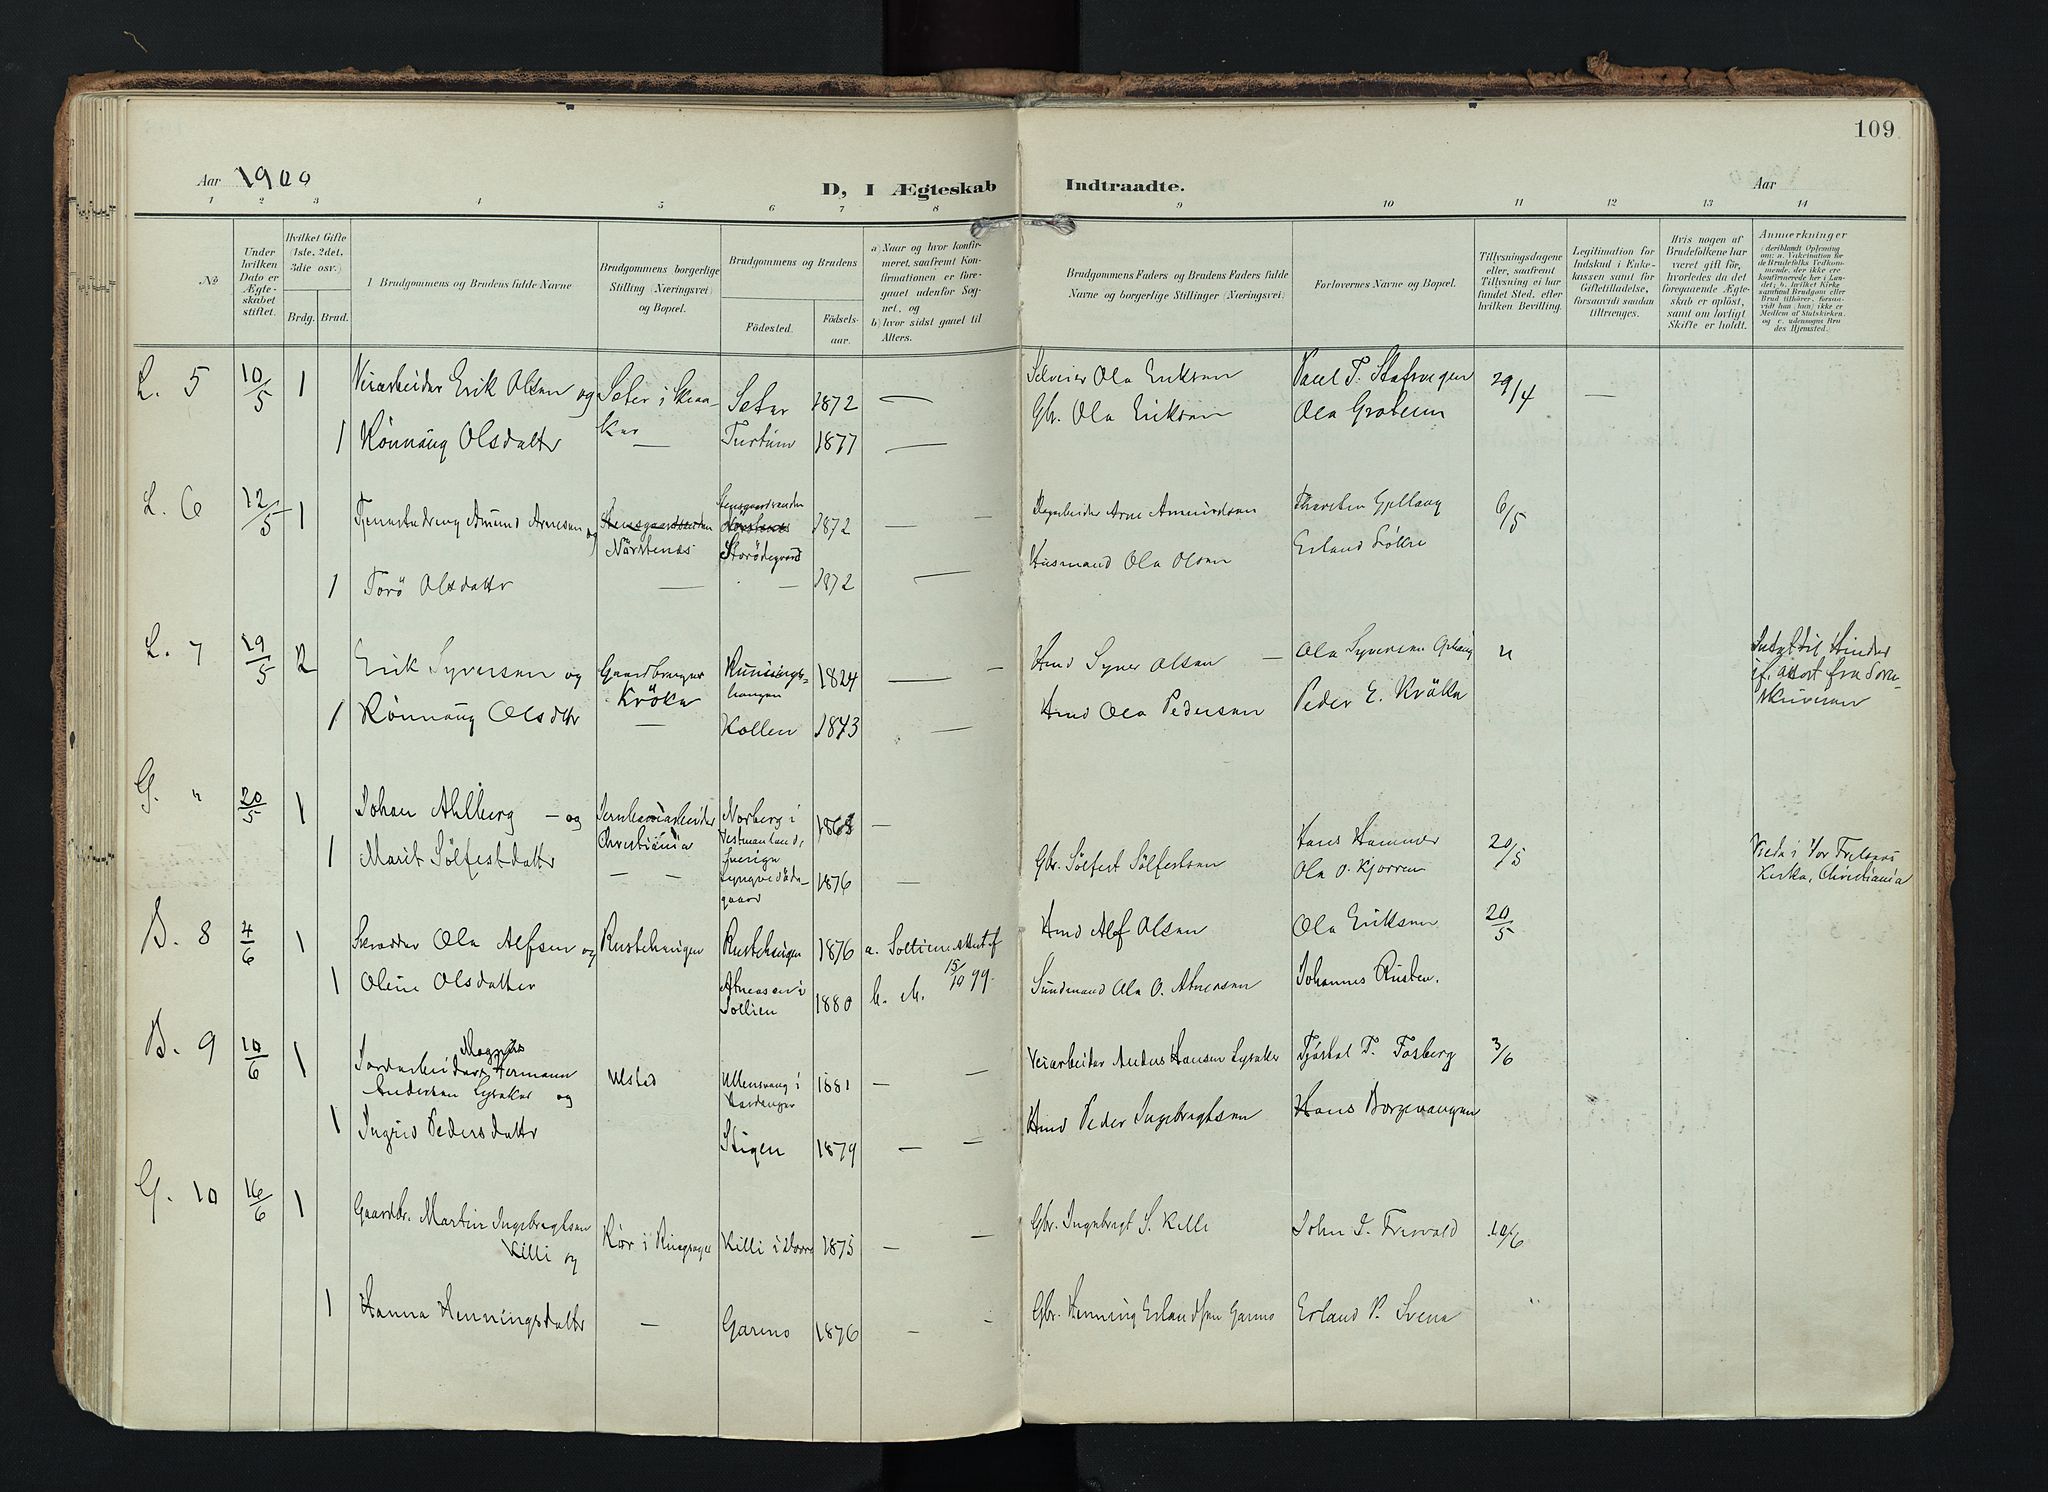 109
Aar 1900
D, I Ægteskab Indtraadte.
Aar
1 2 3 4 5 6 7 8 9 10 11 12 13 14
No
Under hvilken Dato er Ægteskabet stiftet.
Hvilket Gifte (1ste, 2det, 3die osv.)
Brdg. Brud.
Brudgommens og Brudens fulde Navne
Brudgommens borgerlige Stilling (Næringsvei) og Bopæl.
Brudgommens og Brudens
Fødested.
Fødselsaar.
a) Naar og hvor konfirmeret, saafremt Konfirmationen er foregaaet udenfor Sognet, og
b) hvor sidst gaaet til Alters.
Brudgommens Faders og Brudens Faders fulde Navne og borgerlige Stillinger (Næringsvei).
Forlovernes Navne og Bopæl.
Tillysningsdagene eller, saafremt Tillysning ei har fundet Sted, efter hvilken Bevilling.
Legitimation for Indskud i Enkekassen samt for Giftetilladelse, forsaavidt saadan tiltrænges.
Hvis nogen af Brudefolkene har været gift før, hvorledes da det foregaaende Ægteskab er opløst, samt om lovligt Skifte er holdt.
Anmærkninger
L. 5 10/5 1 Veiarbeider Erik Olsen og Seter i Skiaaker Seter 1872 — Selveier Ola Eriksen Paul T. 29/4 —
1 Rønnaug Olsdattr — 1877 — Gbr. Ola Eriksen Ola
L. 6 12/5 1 Tjenestedreng Amund Arnesen og Stensgaardsanden Nørstenes Stensgaardsanden 1872 — Arne Amundsen Thorsten Gjeilaug 6/5
1 Torø Olsdattr — — 1872 — Husmand Ola Olsen Erland
L. 7 19/5 2 Erik Syversen og Gaardbruger Krøka 1824 — Hmd Syver Olsen — Ola Syversen "
1 Rønnaug Olsdtr — Kollen 1843 — Hmd Ola Pedersen Peder E. Kröka
G. " 20/5 1 Johan Ahlberg — og Christiania Norberg i Vestmanland, Sverige —
1 Marit Sölfestdattr — — 1876 — Gbr. Sölfest Sölfestsen Hans Hammer 20/5
Ola O. Kjorren
Viede i Vor Frelsers Kirke, Christiania
B. 8 4/6 1 Skrædder Ola Alfsen og Rustehaugen Rustehaugen 1876 a. Sollien Attest af 15/10 99. Hmd Alf Olsen Ola Eriksen 20/5
1 Oline Olsdatter Atneosen i Sollien 1880 Ola O. Atneosen Johannes Rusten.
B. 9 10/6 1 Jordarbeider Magnus Hermann Andersen Lysaker og Ulsted Ullensvang i Hardanger 1881 — — Veiarbeider Anders Hansen Lysaker Tjøstol T. Fosberg 3/6
1 Ingrid Pedersdattr Stigen 1879 — — Hmd Peder Ingebregtsen Hans
G. 10 16/6 1 Gaardbr. Martin Ingebregtsen Killi og Kør i Ringsaker Killi i Dovre 1875 — — Gbr. Ingebregt S. Killi John J. Frisvold 10/6
1 Hanna Henningsdattr — Garmo 1876 — — Gbr. Henning Erlandsen Garmo Erland P. Sveine